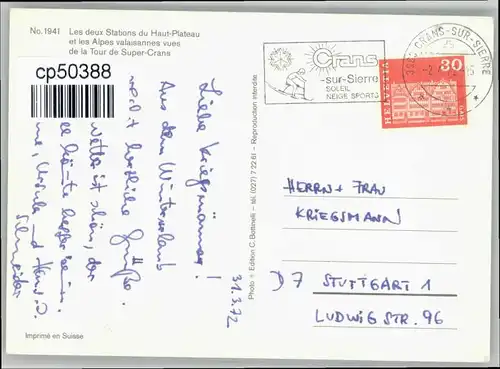 No. 1941 Les deux Stations du Haut-Plateau
et les Alpes valaisannes vues
de la Tour de Super-Crans
cp50388
Crans
-sur-Sierre
SOLEIL
NEIGE SPORTS
CRANS-SUR-SIERRE
HELVETIA
30
Liebe Kriegsmänner!
Aus dem Winterurlaub
recht herzliche Grüße.
Wetter ist schön, der
könnte besser sein.
Ursula und
Schneider
31.3.72
Photo Edition C. Bettinelli – tél. (027) 7 22 61 – Reproduction interdite.
HERRN + FRAU
KRIEGSMANN
D 7 STUTTGART 1
LUDWIGSTR. 96
Imprimé en Suisse